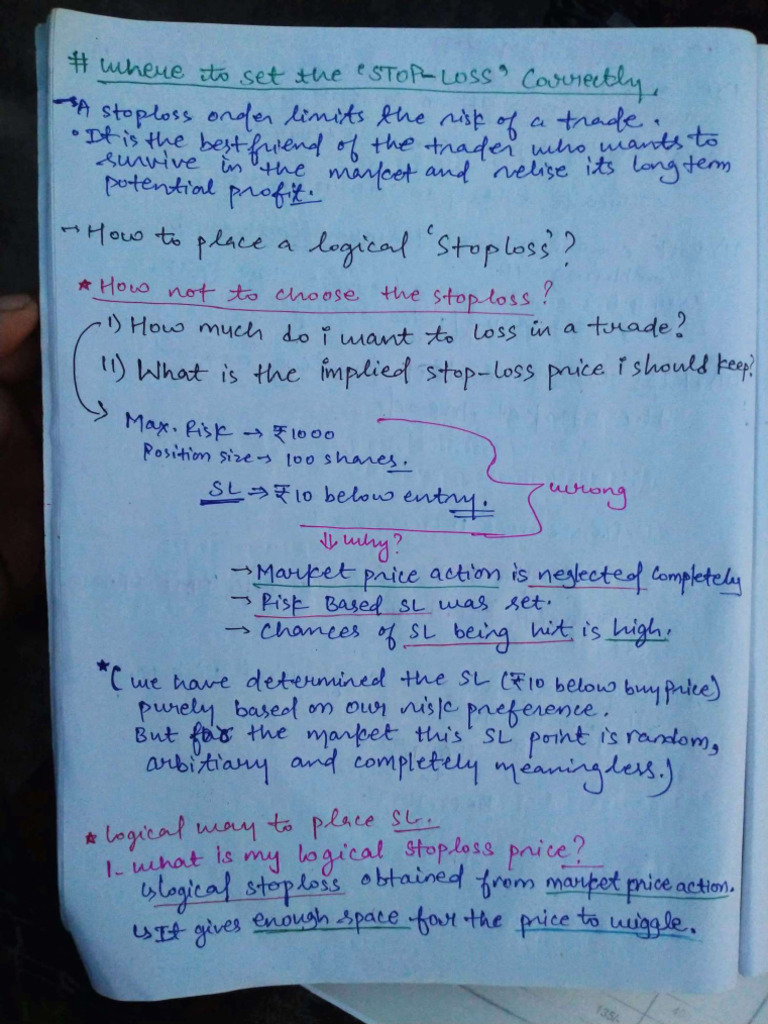 # Where to set the 'STOP-LOSS' Correctly.
→ A stoploss order limits the risk of a trade.
• It is the best friend of the trader who wants to
survive in the market and relise its long term
potential profit.
→ How to place a logical 'Stoploss'?
* How not to choose the stoploss?
I) How much do i want to loss in a trade?
II) What is the implied stop-loss price i should keep?
Max. Risk → ₹1000
Position size → 100 shares.
SL ⇒ ₹10 below entry.
wrong
⇓ why?
→ Market price action is neglected completely
→ Risk Based SL was set.
→ Chances of SL being hit is high.
* (we have determined the SL (₹10 below buy price)
purely based on our risk preference.
But for the market this SL point is random,
arbitiary and completely meaningless.)
* Logical way to place SL.
1- What is my logical stoploss price?
↳ logical stoploss obtained from market price action.
↳ It gives enough space for the price to wiggle.